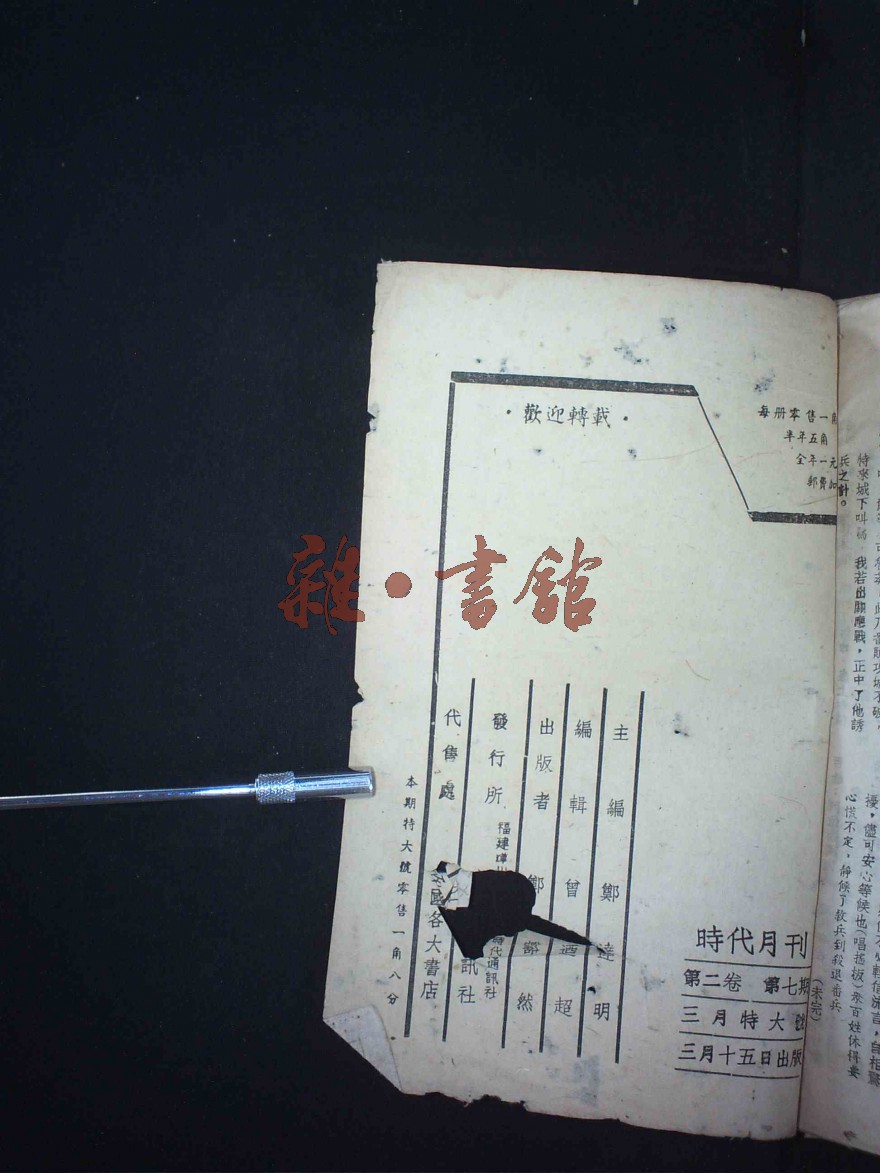 每册零售一角
半年五角
全年一元
郵費
·歡迎轉載·
雜·書館
時代月刊
第二卷 第七期
三月特大號
三月十五日出版
主編 鄭達明
編輯 曾迺超
出版者 鄭 然
發行所 福建
時代通訊社
訊社
代售處 全國各大書店
本期特大號零售一角八分
兵之計。
特來城下叫 我若出關應戰，正中了他誘
(未完)
擾，儘可安心等候也(唱搖板)衆百姓休得要
心慌不定，靜候了救兵到我退番兵